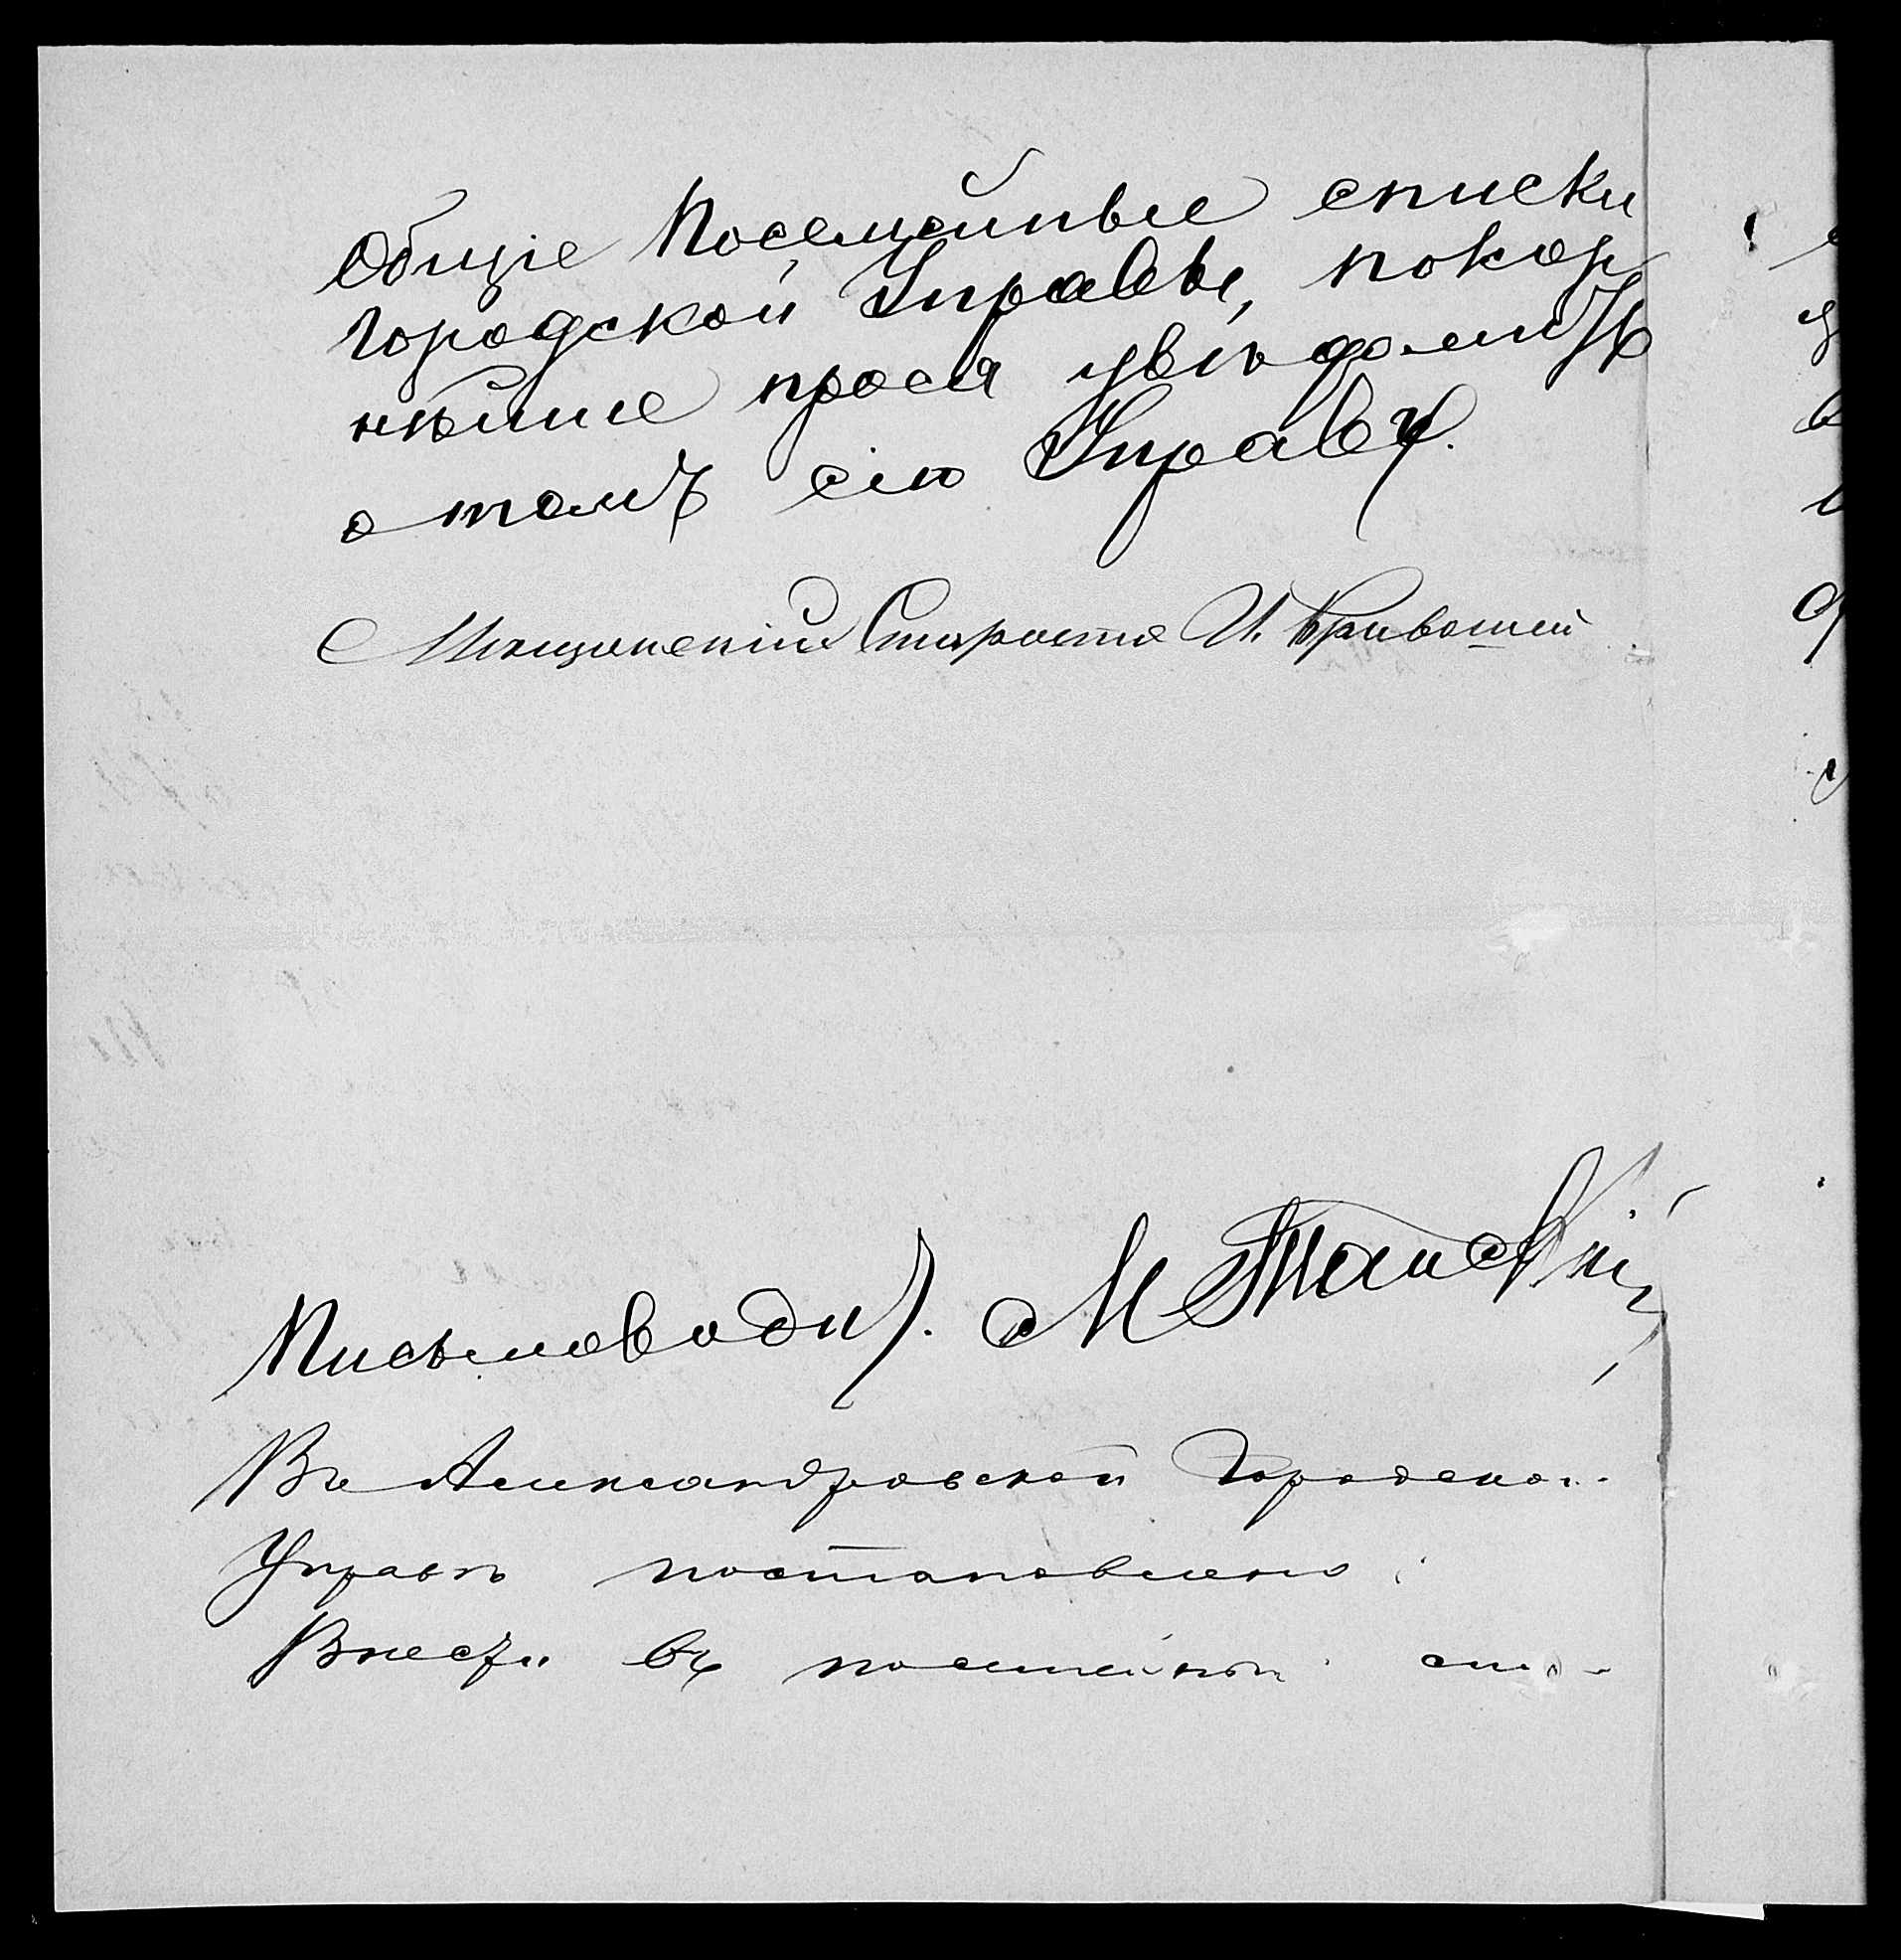 общіе Посемейные списки
городской Управы, покор
нѣйше прося увѣдомить
о томъ сію Управу.
Мѣщанскій Староста И. Кривошей
Письмоводит. М
Въ Александровской Городской
Управѣ постановлено:
Внести въ посемейный